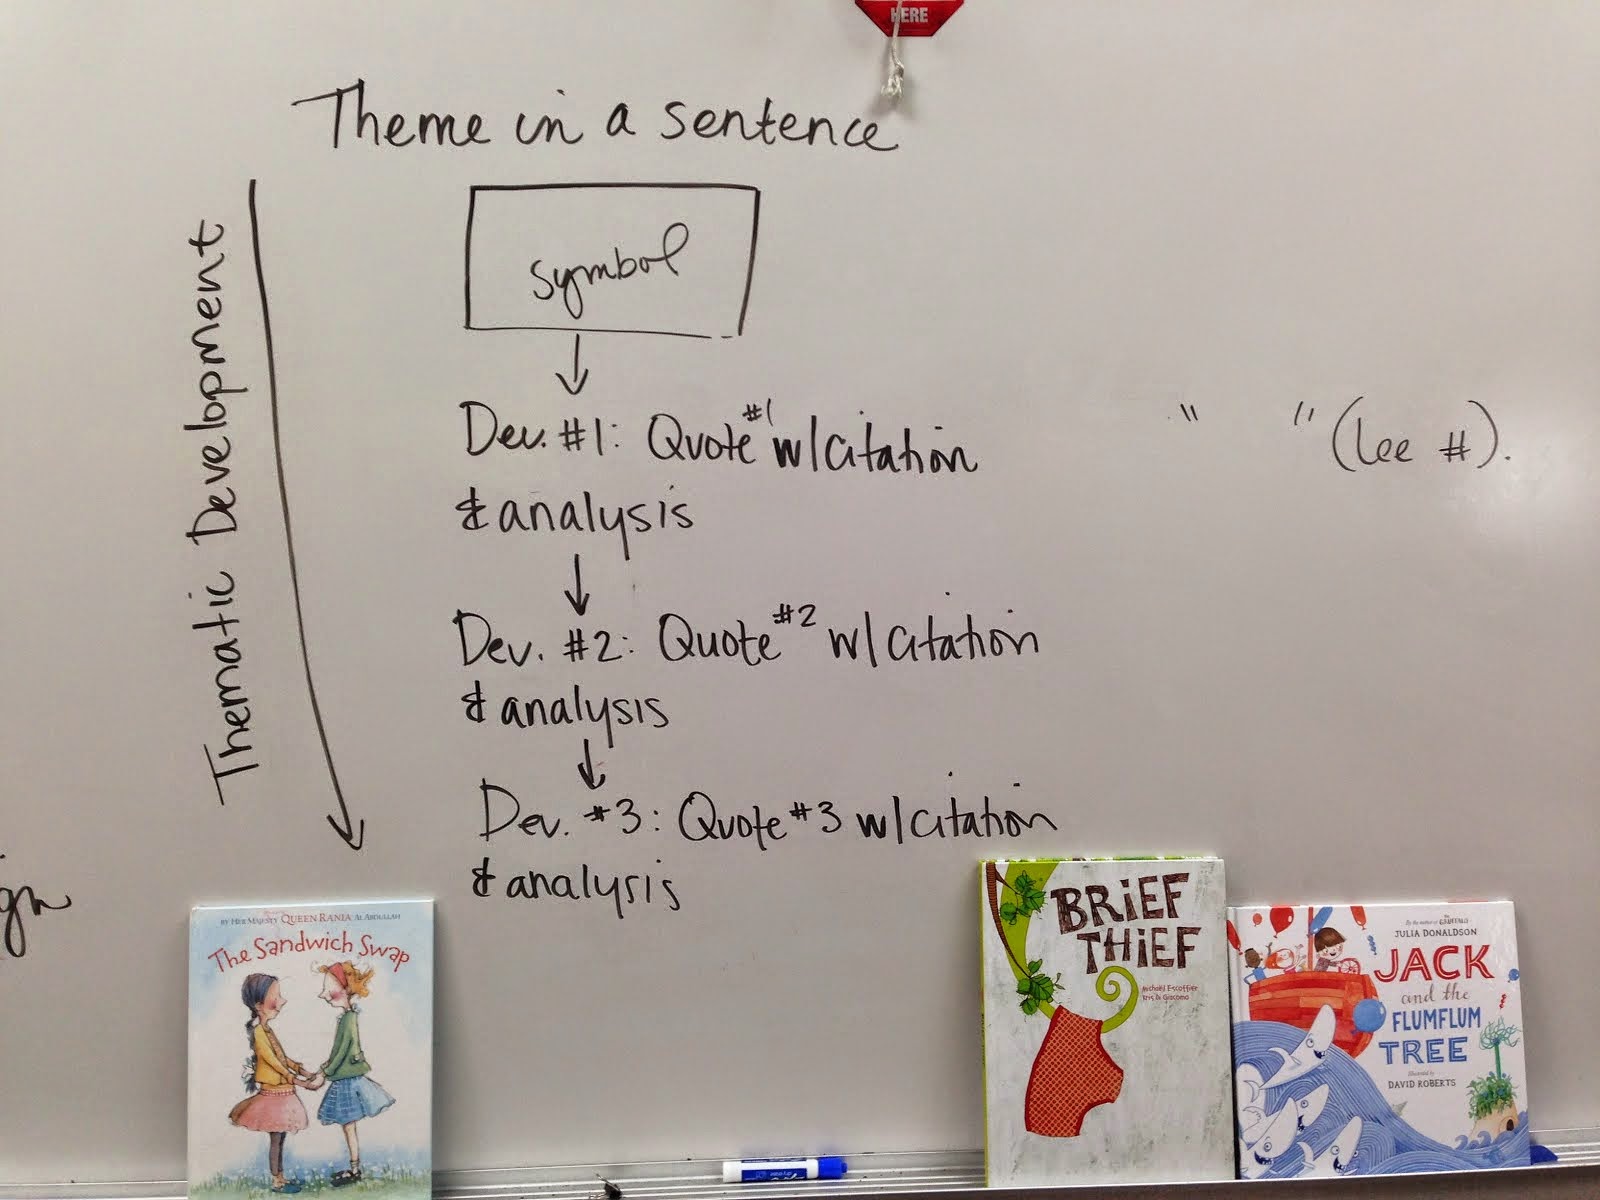 HERE
Theme in a sentence
Thematic Development
symbol
Dev. #1: Quote #1 w/citation
& analysis
" " (Lee #).
Dev. #2: Quote #2 w/citation
& analysis
Dev. #3: Quote #3 w/citation
& analysis
BY HER MAJESTY QUEEN RANIA AL ABDULLAH
The Sandwich Swap
BRiEF
THiEF
Michaël Escoffier
Kris Di Giacomo
By the author of the GRUFFALO
JULIA DONALDSON
JACK
and the
FLUMFLUM
TREE
Illustrated by
DAVID ROBERTS